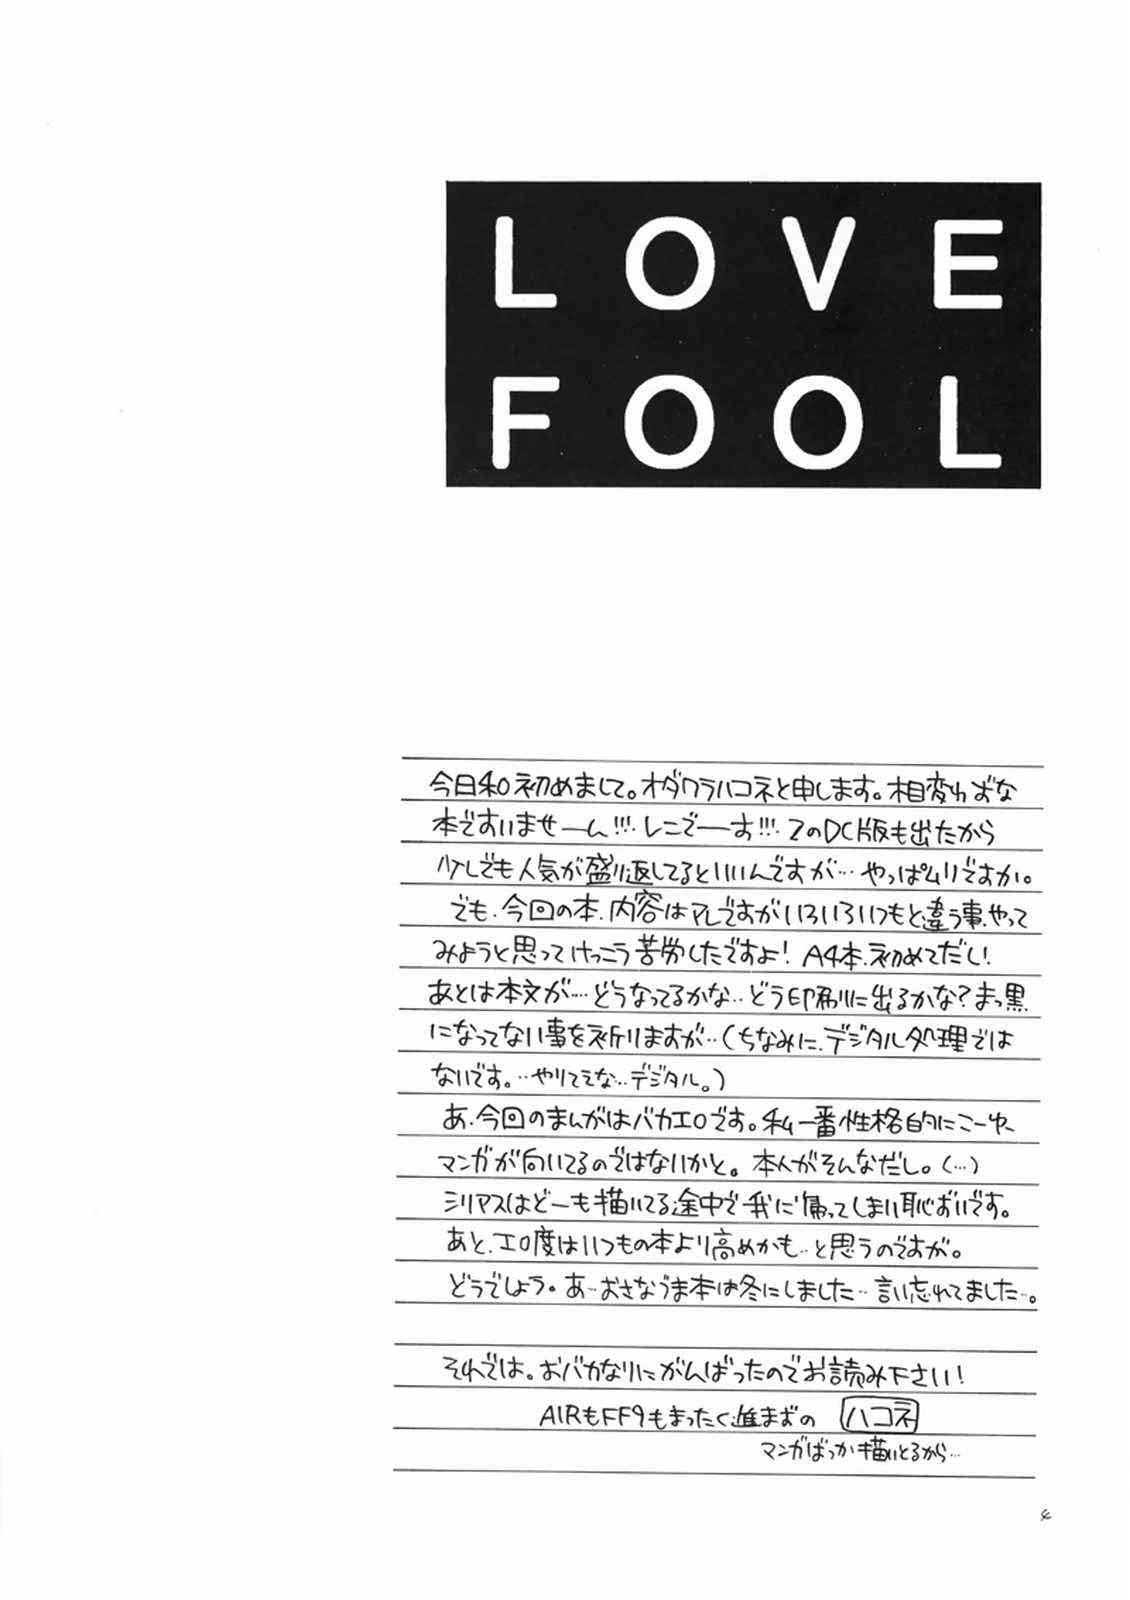 LOVE
FOOL
今日和初めまして。オダワラハコネと申します。相変わらずな
本ですいませーん!!!レニでーす!!!2のDC版も出たから
少しでも人気が盛り返してるといいんですが…やっぱムリですか。
でも、今回の本、内容はアレですがいろいろいつもと違う事、やって
みようと思ってけっこう苦労したですよ!A4本、初めてだし!
あとは本文が…どうなってるかな…どう印刷に出るかな?まっ黒
になってない事を祈りますが…(ちなみに、デジタル処理では
ないです。…やりてえな…デジタル。)
あ、今回のまんがはバカエロです。私一番性格的にこーゆー
マンガが向いてるのではないかと。本人がそんなだし。(…)
シリアスはどーも描いてる途中で我に帰ってしまい恥ずいです。
あと、エロ度はいつもの本より高めかも…と思うのですが。
どうでしょう。あ…おさなづま本は冬にしました…言い忘れてました…。
それでは。おバカなりにがんばったのでお読み下さい!
AIRもFF9もまったく進まずの ハコネ
マンガばっか描いとるから…
4